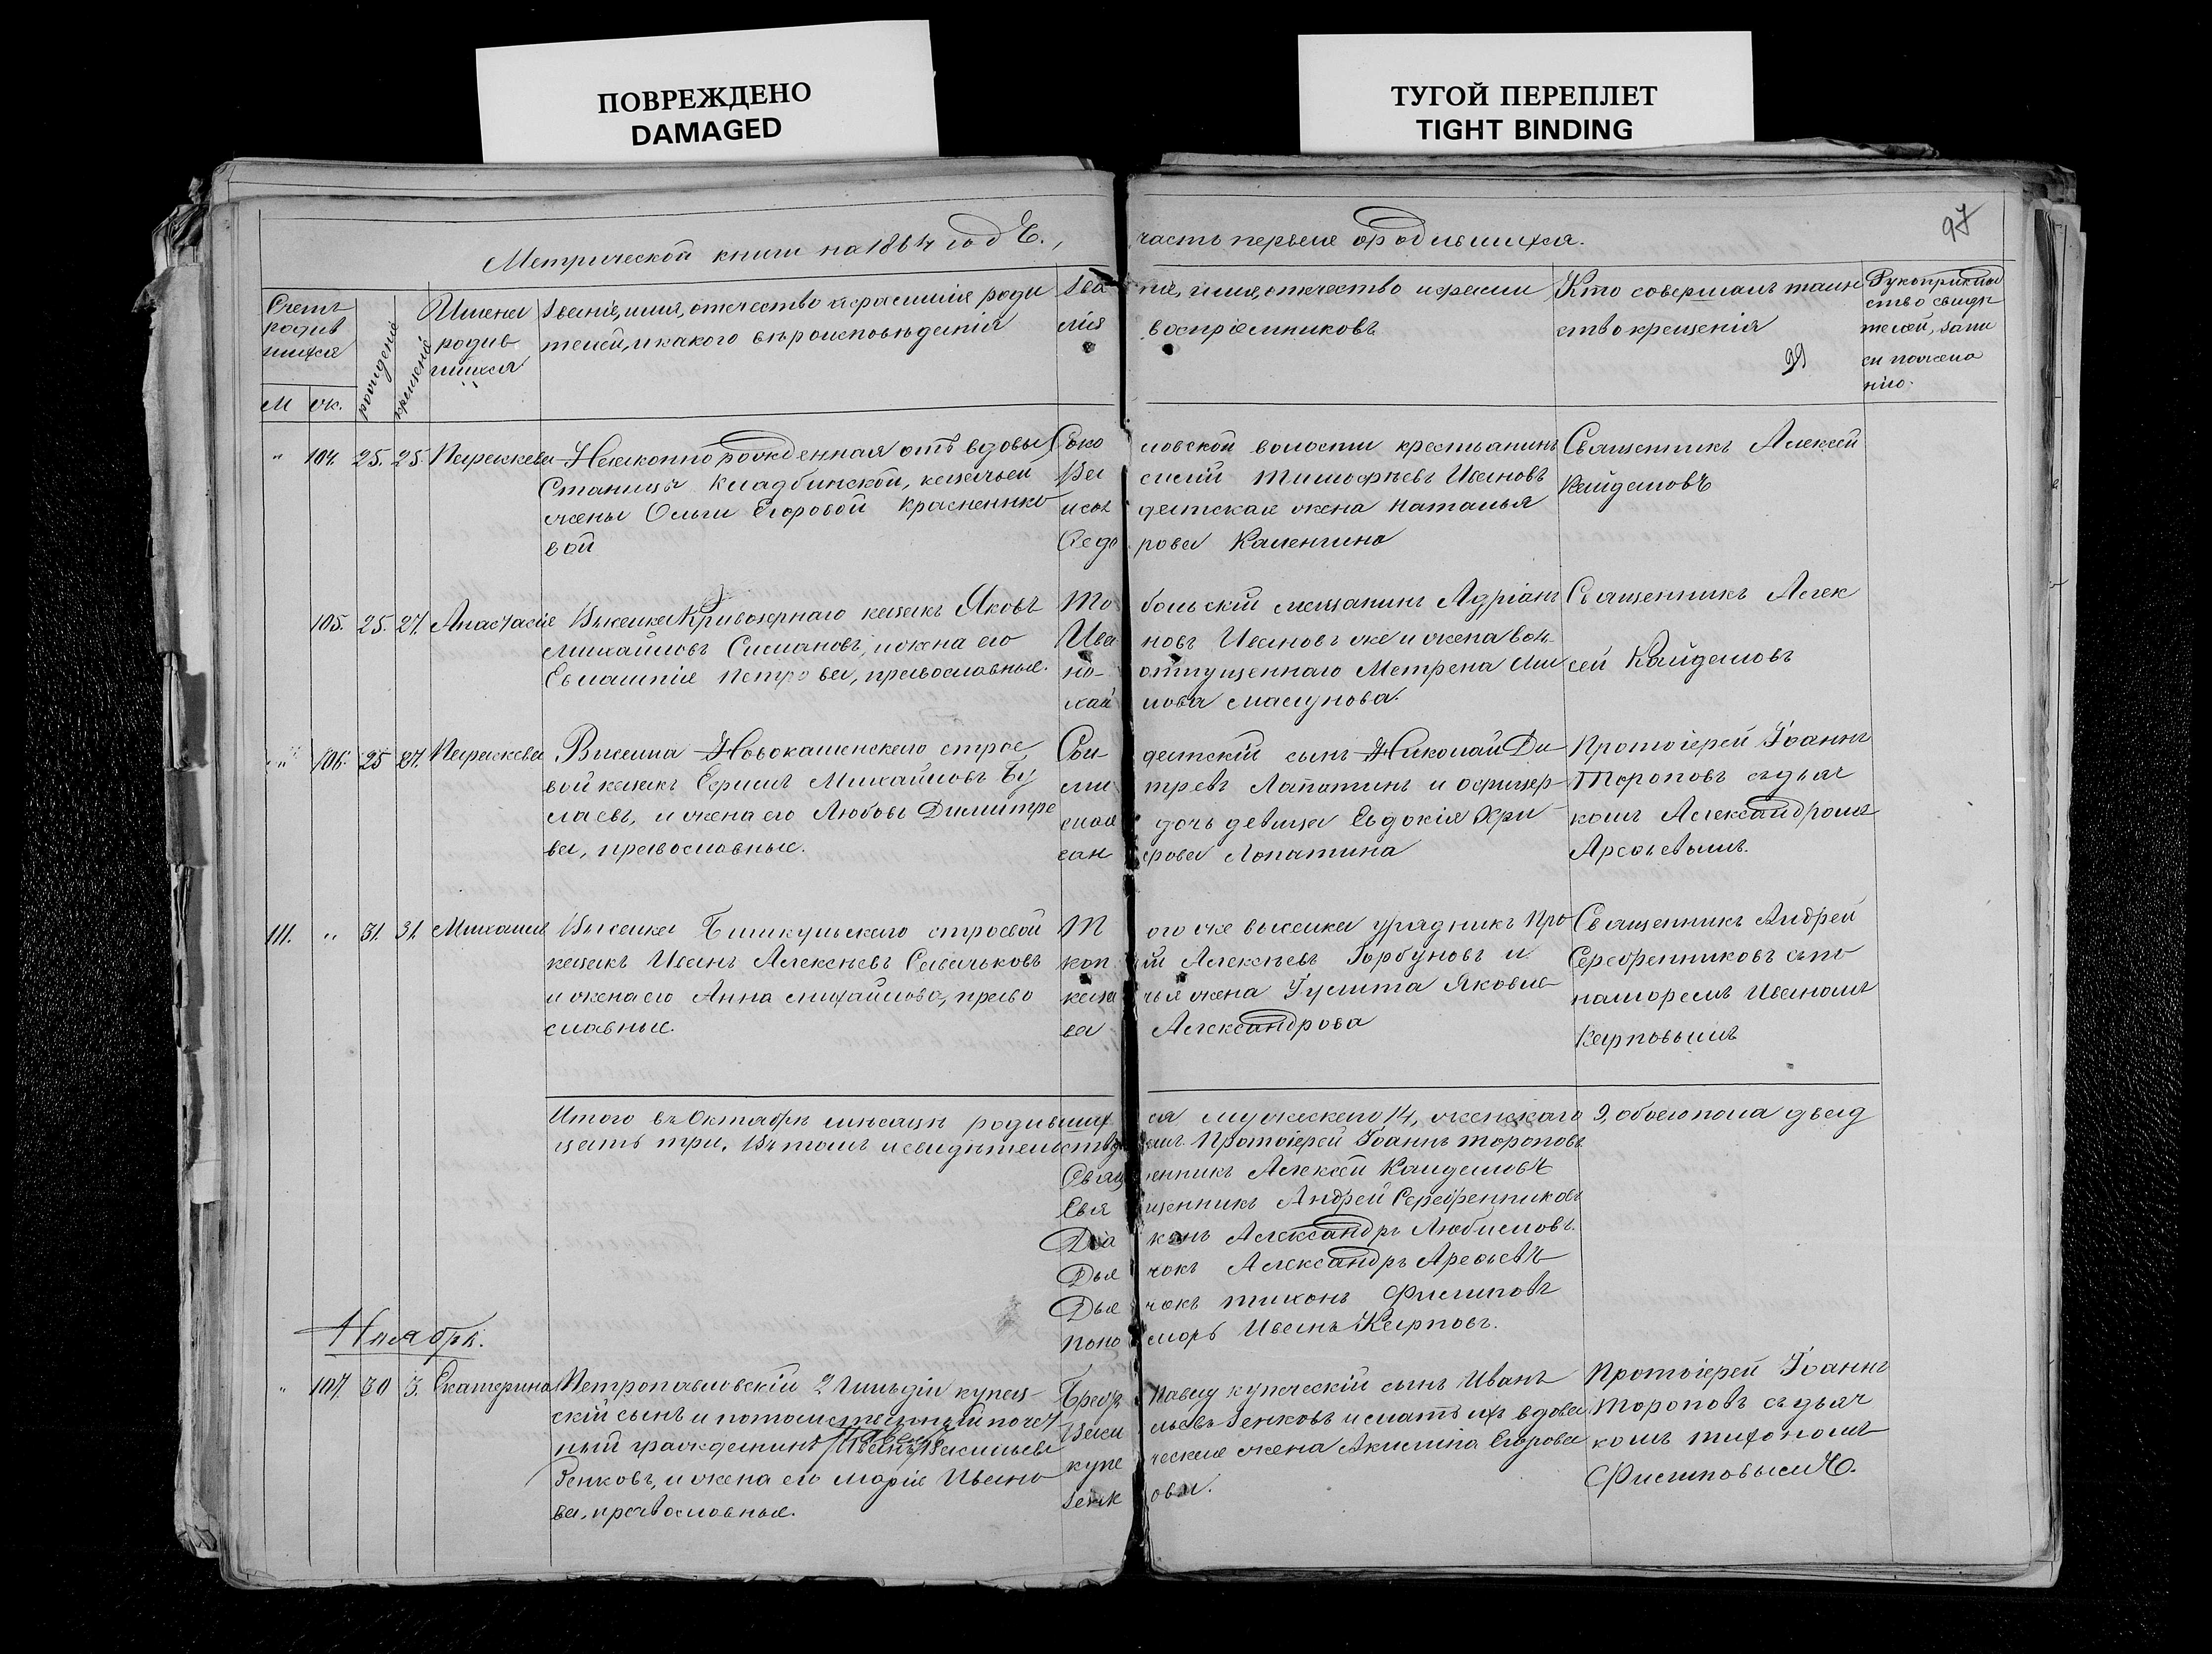 ПОВРЕЖДЕНО
DAMAGED
ТУГОЙ ПЕРЕПЛЕТ
TIGHT BINDING
97
Метрической книги на 1864 годъ.,
часть первая о родившихся.
Счетъ
родив
шихся
М
ж.
рожденія
крещенія
Имена
родив
шихся
Званіе, имя, отчество и фамилія роди
телей, и какого вѣроисповѣданія
Зва
ніе, имя, отчество и фамил
лія
воспріемниковъ
Кто совершалъ таин
ство крещенія
99
Рукоприклад
ство свидѣ
телей, запи
си по жела
нію.
" 104. 25. 25. Параскева
Незаконнорожденная отъ вдовы
Станицы Кладбинской, казачьей
жены Ольги Егоровой Красненико
вой
Соко
ловской волости крестьянинъ
Ва
силій Тимофѣевъ Ивановъ
и сол
датская жена Наталья
Федо
рова Каленгина
Священникъ Алексей
Кайдаловъ
105. 25. 27. Анастасія
Выселка Кривозернаго казакъ Яковъ
Михайловъ Силиановъ, и жена его
Евлампія Петрова, православные.
То
больскій мещанинъ Адріанъ
Ива
новъ Ивановъ же и жена вол
но-
отпущеннаго Матрена Ми
хай
лова Масунова.
Священникъ Алек
сей Кайдаловъ
" 106. 25 27. Параскева
Выселка Новокаменскаго строе
вой казакъ Герасимъ Михайловъ Бу
лаевъ, и жена его Любовь Димитре
ва, православные.
Сол
датскій сынъ Николай Ди
ми
тревъ Лапатинъ и офицер
ская
дочь девица Евдокія Хри
сан
фова Лопатина
Протоіерей Іоаннъ
Тороповъ съ дьяч
комъ Александромъ
Арефьевымъ.
111. " 31. 31. Михаилъ
Выселка Бишкульскаго строевой
казакъ Иванъ Алексеевъ Савельковъ
и жена его Анна Михайлова, право
славные.
Т
ого же выселка урядникъ Про
коп
ій Алексеевъ Горбуновъ и
каза
чья жена Гулита Яковле
ва
Александрова
Священникъ Андрей
Серебренниковъ съ по
номоремъ Иваномъ
Карповымъ
Итого въ Октябрѣ мѣсяцѣ родивших
ся мужескаго 14, женскаго 9, обоего пола двад
цать три. Въ томъ и свидѣтельству
емъ Протоіерей Іоаннъ Тороповъ
Священникъ Алексей Кайдаловъ
Священникъ Андрей Серебренниковъ
Діаконъ Александръ Любимовъ.
Дьячокъ Александръ Арефьевъ
Дьячокъ Тихонъ Филиповъ
Пономорь Иванъ Карповъ.
Ноябрь.
" 107. 30 3. Екатерина
Петропавловскій 2 Гильдіи купец-
скій сынъ и потомственный почет
ный гражданинъ Иванъ Васильевъ
Зенковъ, и жена его Марія Ивано
ва, православные.
купеческій сынъ Иванъ
Васи
льевъ Зенковъ и мать ихъ вдова
купе
ческая жена Акилина Егорова
Зенк
ова.
Протоіерей Іоаннъ
Тороповъ съ дьяч
комъ Тихономъ
Филиповымъ.